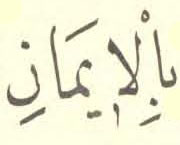 بِالْاِيمَانِ